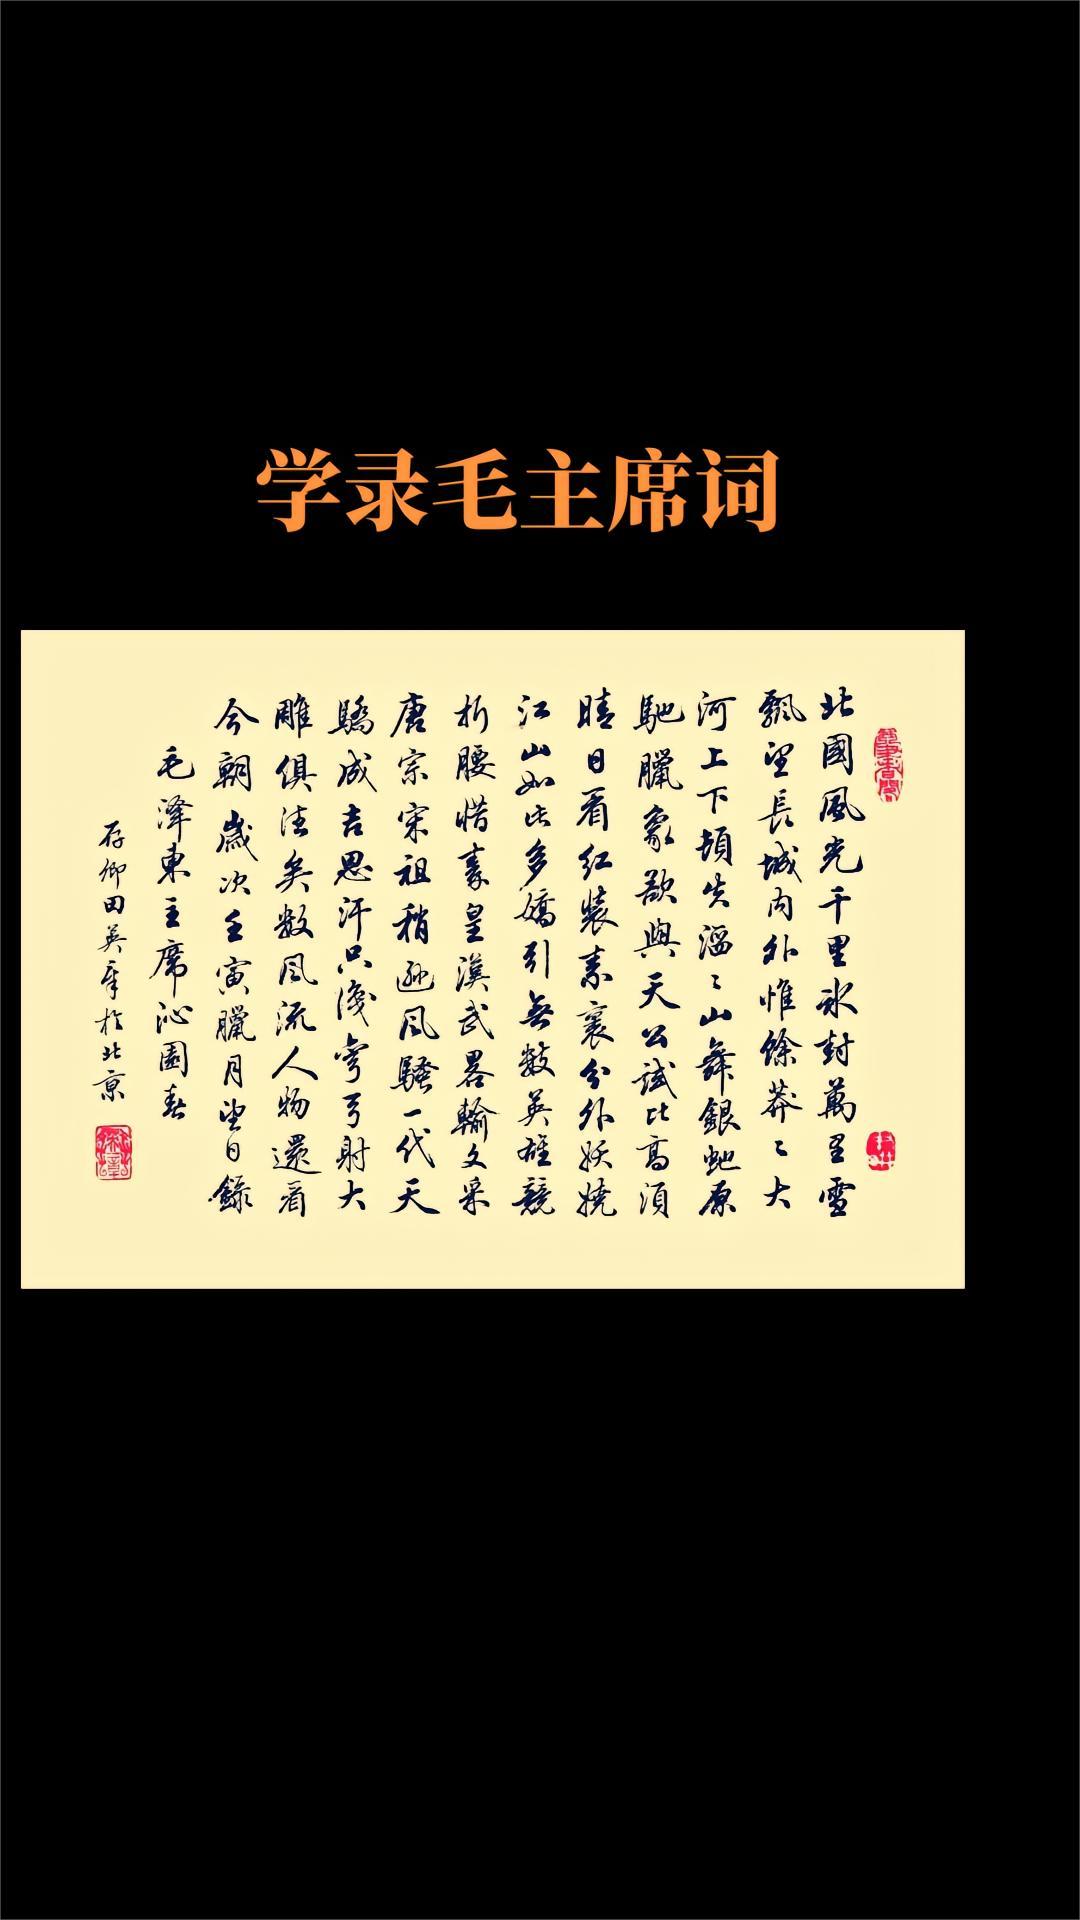 学录毛主席词
北國風光千里冰封萬里雪
飄望長城内外惟餘莽〻大
河上下頓失滔〻山舞銀蛇原
馳臘象欲與天公試比高須
晴日看红裝素裹分外妖嬈
江山如此多嬌引無數英雄競
折腰惜秦皇漢武畧輸文采
唐宗宋祖稍遜風騷一代天
驕成吉思汗只識彎弓射大
雕俱往矣數風流人物還看
今朝歲次壬寅臘月望日錄
毛澤東主席沁園春
存卿田英章於北京